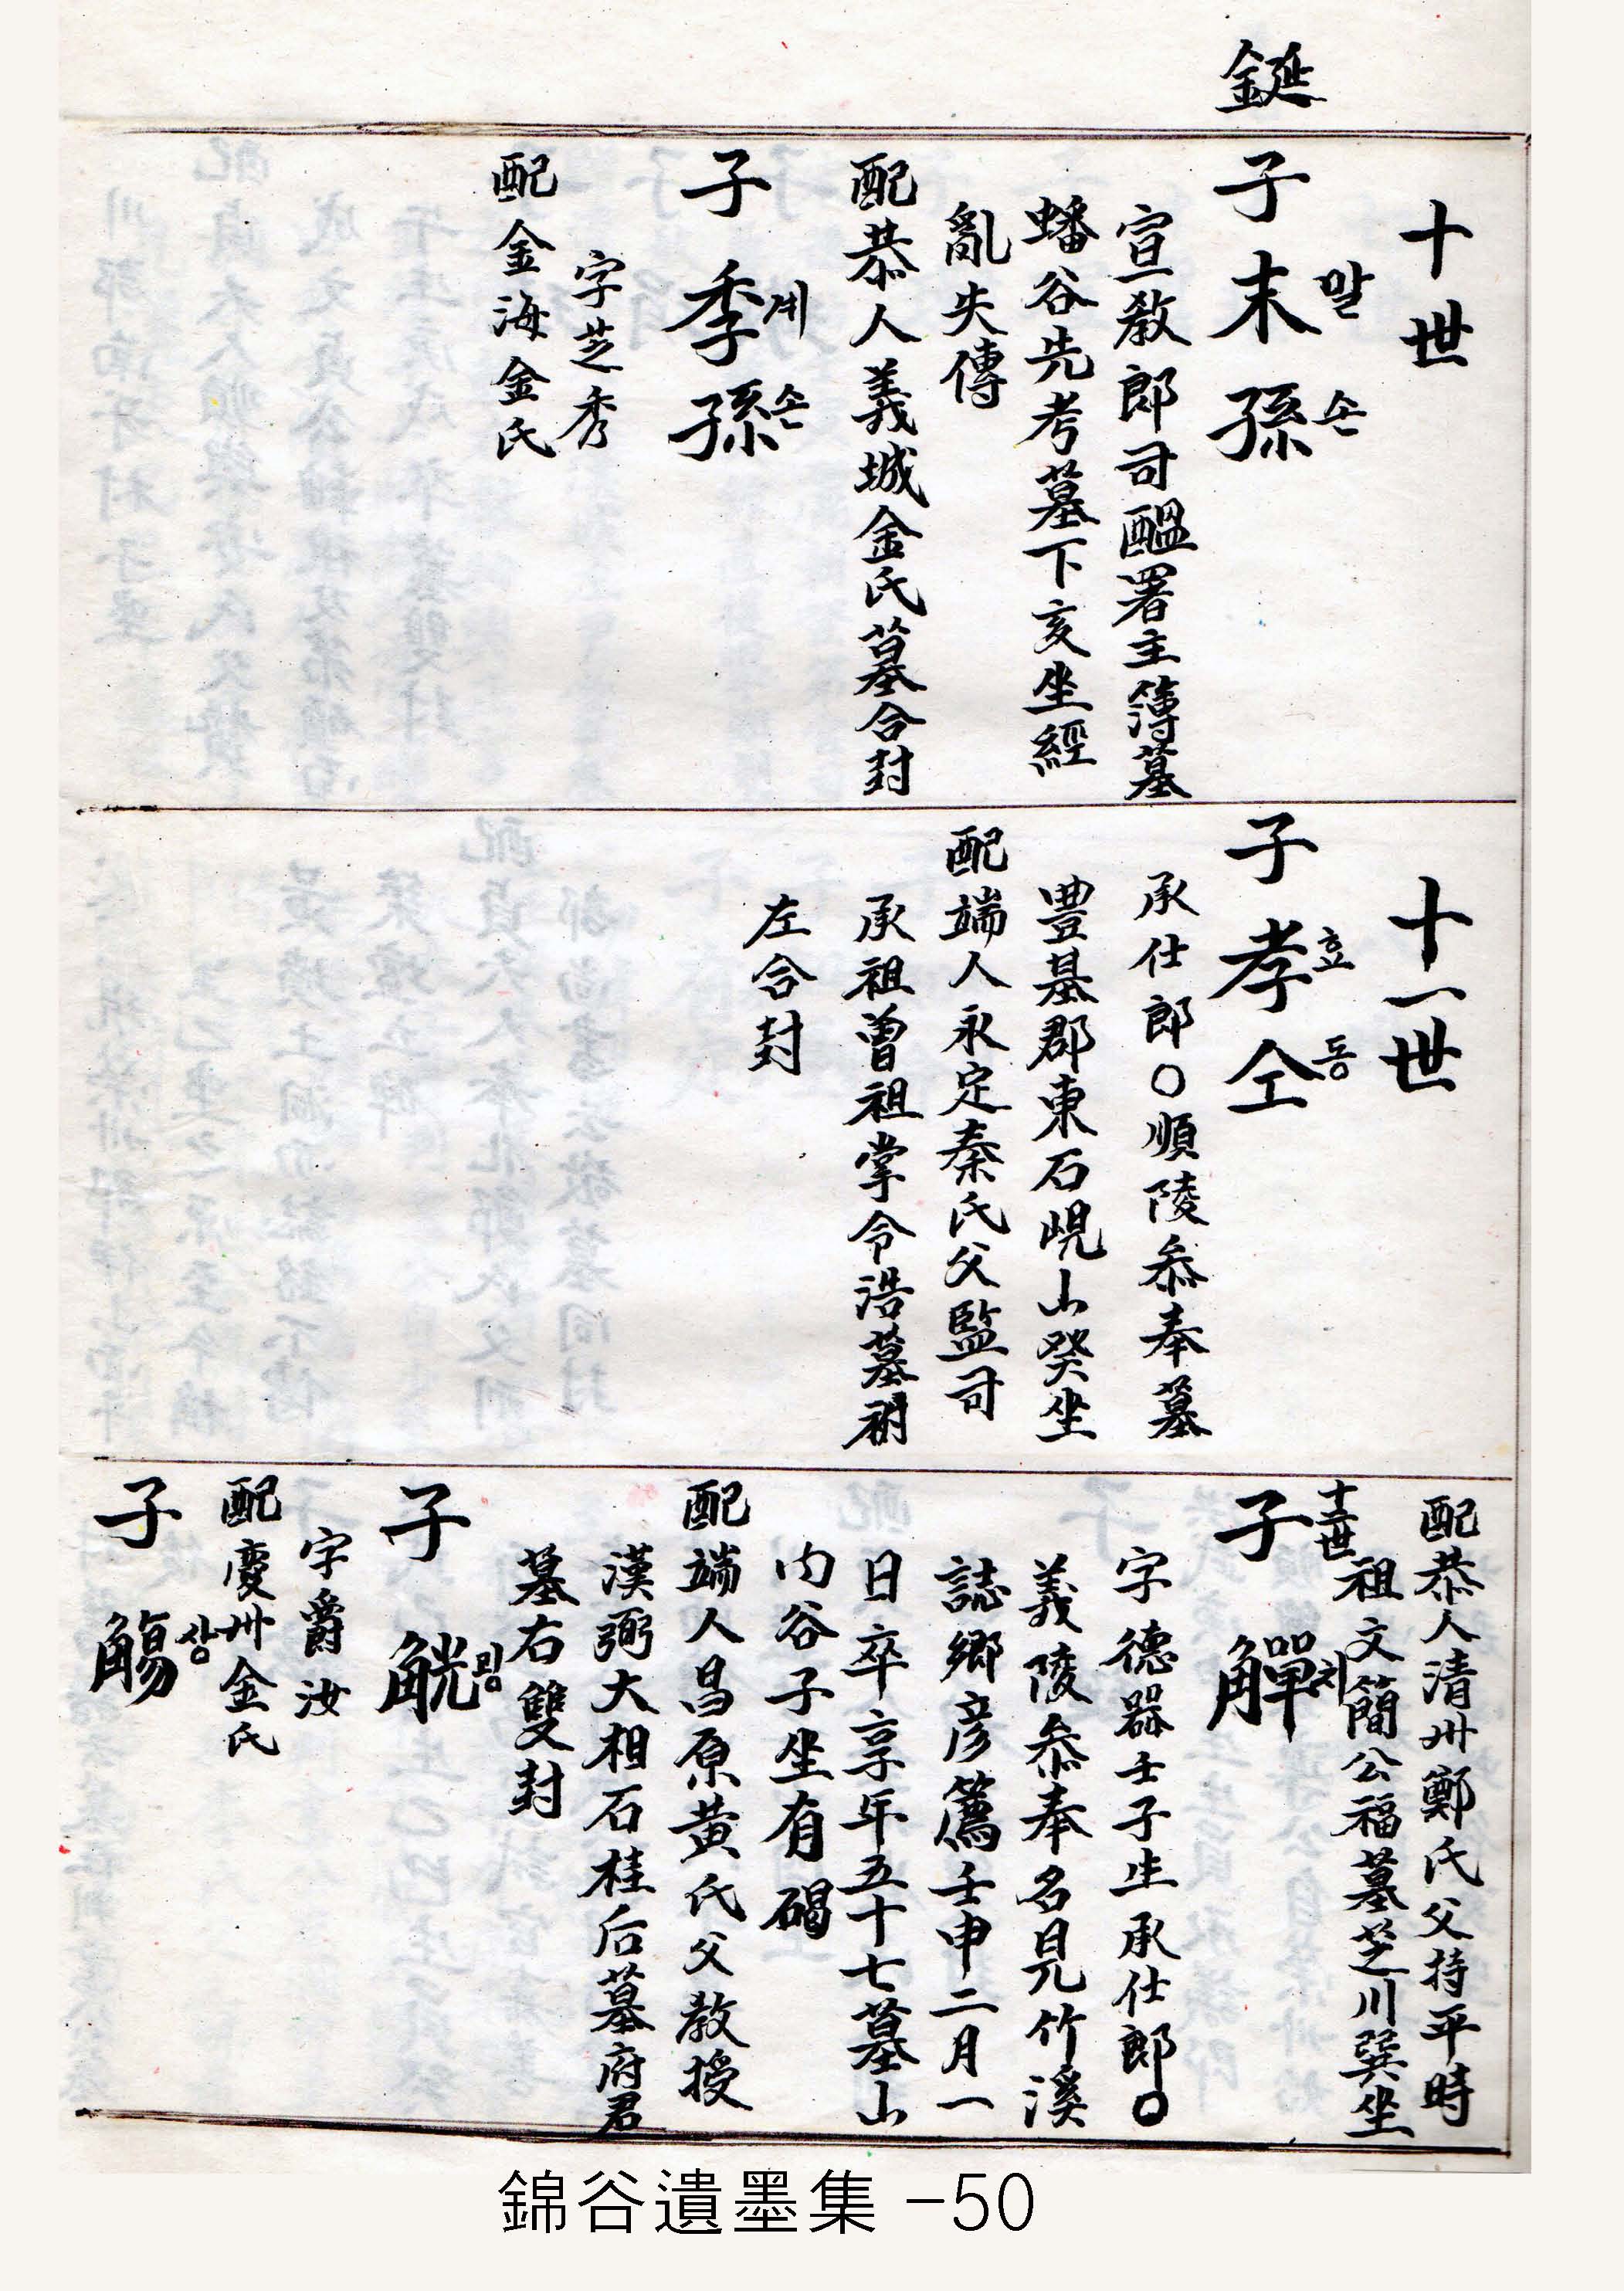 鋋
十世
子 末孫
말손
宣敎郎司醞署主簿墓
蟠谷先考墓下亥坐經
亂失傳
配恭人義城金氏墓合封
子 季孫
계손
字芝秀
配金海金氏
十一世
子 孝仝
효동
承仕郎○順陵叅奉墓
豊基郡東石峴山癸坐
配端人永定秦氏父監司
承祖曾祖掌令浩墓祔
左合封
配恭人清州鄭氏父持平時
祖文簡公福墓芝川巽坐
十二世
子 觶
치
字德器壬子生承仕郎○
義陵叅奉名見竹溪
誌鄉彦薦壬申二月一
日卒享年五十七墓山
內谷子坐有碣
配端人昌原黃氏父敎授
漢弼大相石桂后墓府君
墓右雙封
子 觥
굉
字爵汝
配慶州金氏
子 觴
상
錦谷遺墨集 -50